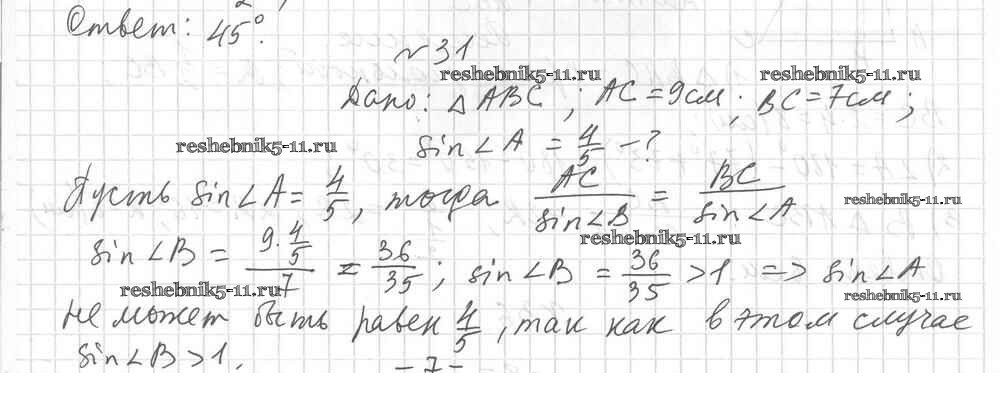 Ответ: 45°.
№31
reshebnik5-11.ru reshebnik5-11.ru
Дано: △ABC; AC = 9см; BC = 7см;
reshebnik5-11.ru
sin∠A = 4/5 - ?
Пусть sin∠A = 4/5, тогда AC/sin∠B = BC/sin∠A
reshebnik5-11.ru
reshebnik5-11.ru
sin∠B = 9·4/5/7 = 36/35; sin∠B = 36/35 > 1 => sin∠A
reshebnik5-11.ru reshebnik5-11.ru
не может быть равен 4/5, так как в этом случае
sin∠B > 1.
- 7 -